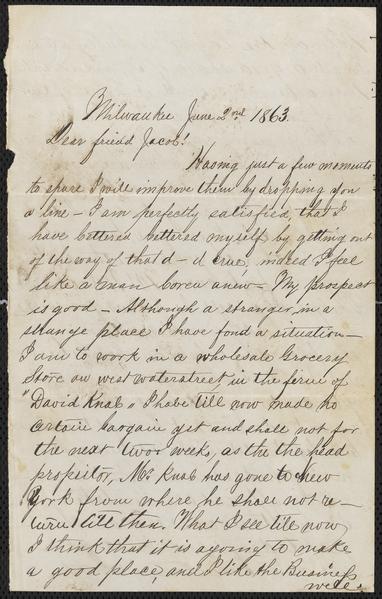 Milwaukee June 2nd 1863.
Dear friend Jacob!
Having just a few moments
to spare I will improve them by dropping you
a line – I am perfectly satisfied, that I
have bettered bettered myself by gitting out
of the way of that d–d crue, indeed I feel
like a man boren anew – My prospect
is good – Although a stranger, in a
strange place I have fond a situation –
I am to work in a wholesale Grocery
Store on west waterstreet, in the firm of
"David Knab" I habe till now made no
certain bargain yet and shall not for
the next twoo weeks, as the the head
propietor, Mr. Knab has gone to New
York from where he shall not re–
turn till then. What I see till now
I think that it is agoing to make
a good place, and I like the Business
well.